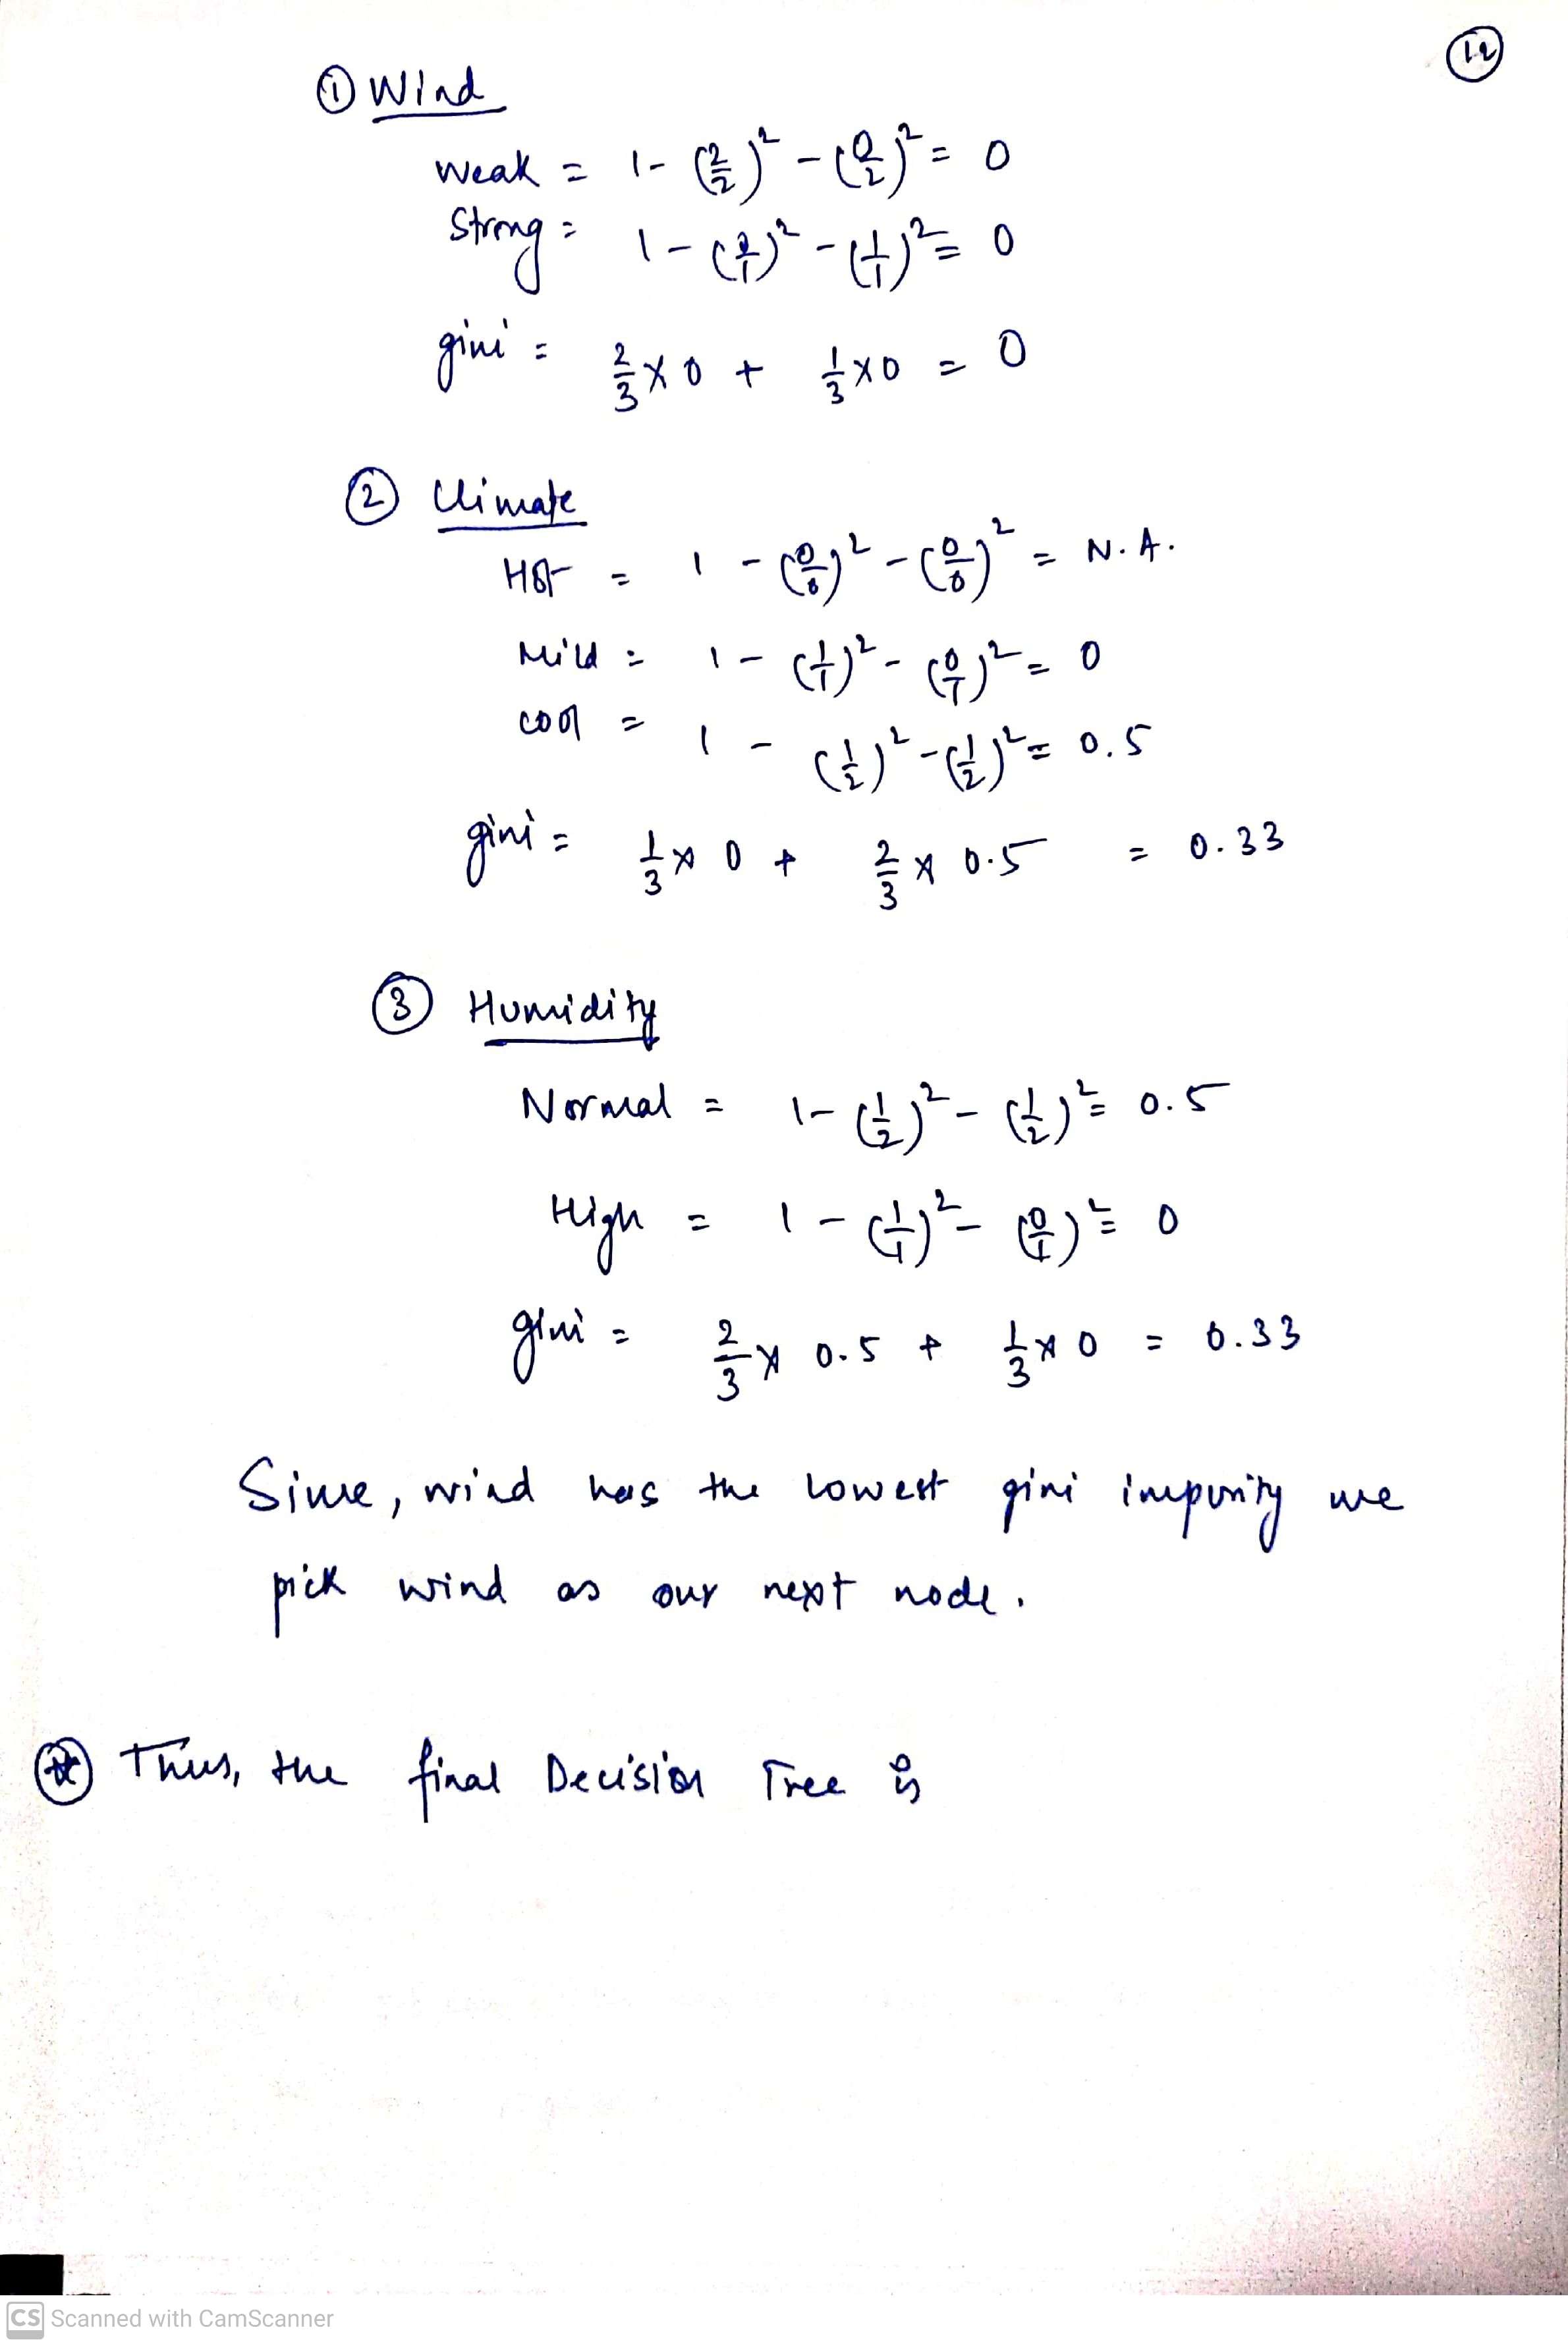 12
① Wind
Weak = 1 - (2/2)² - (0/2)² = 0
Strong = 1 - (0/1)² - (1/1)² = 0
gini = 2/3 × 0 + 1/3 × 0 = 0
② Climate
Hot = 1 - (0/0)² - (0/0)² = N.A.
Mild = 1 - (1/1)² - (0/1)² = 0
cool = 1 - (1/2)² - (1/2)² = 0.5
gini = 1/3 × 0 + 2/3 × 0.5 = 0.33
③ Humidity
Normal = 1 - (1/2)² - (1/2)² = 0.5
High = 1 - (1/1)² - (0/1)² = 0
gini = 2/3 × 0.5 + 1/3 × 0 = 0.33
Since, wind has the lowest gini impurity we
pick wind as our next node.
Thus, the final Decision Tree is
CS Scanned with CamScanner